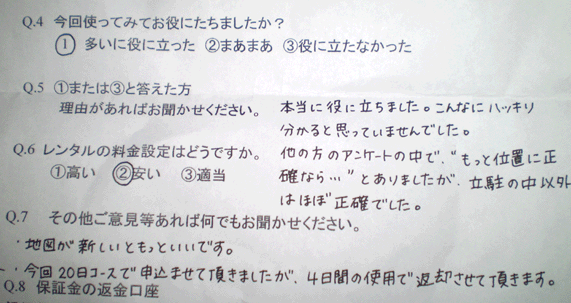 Q.4 今回使ってみてお役にたちましたか？
① 多いに役に立った ②まあまあ ③役に立たなかった
Q.5 ①または③と答えた方
理由があればお聞かせください。
本当に役に立ちました。こんなにハッキリ
分かると思っていませんでした。
Q.6 レンタルの料金設定はどうですか。
①高い ②安い ③適当
他の方のアンケートの中で、"もっと位置に正
確なら…"とありましたが、立駐の中以外
はほぼ正確でした。
Q.7 その他ご意見等あれば何でもお聞かせください。
・地図が新しいともっといいです。
・今回20日コースで申込ませて頂きましたが、4日間の使用で返却させて頂きます。
Q.8 保証金の返金口座